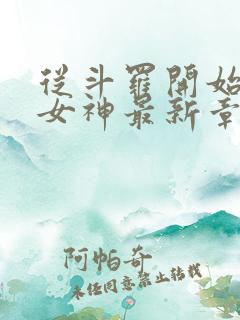 從斗羅開始
女神最新章
阿帕奇
未经同意禁止转载